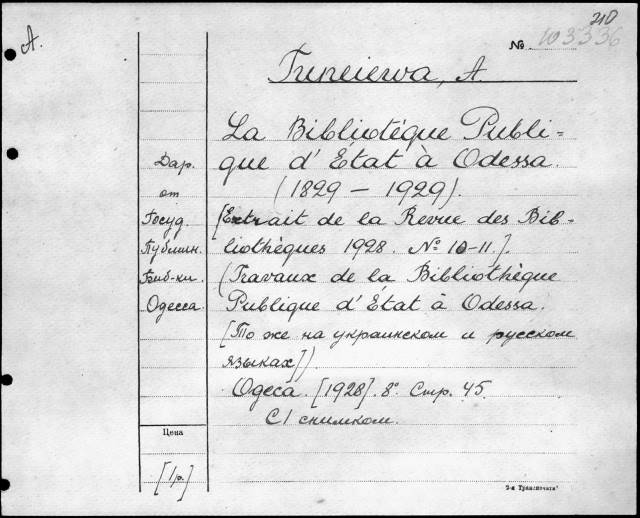 A.
210
№ 103336
Tuneiewa, A.
La Bibliotéque Publi-
que d'État à Odessa.
(1829 — 1929).
[Extrait de la Revue des Bib-
liothèques 1928. № 10-11].
(Travaux de la Bibliothèque
Publique d'État à Odessa.
[То же на украинском и русском
языках])
Одеса. [1928]. 8°. Стр. 45.
С 1 снимком.
Дар.
от
Госуд.
Публичн.
Биб-ки.
Одесса.
Цена
[1р.]
2-я Транспечать